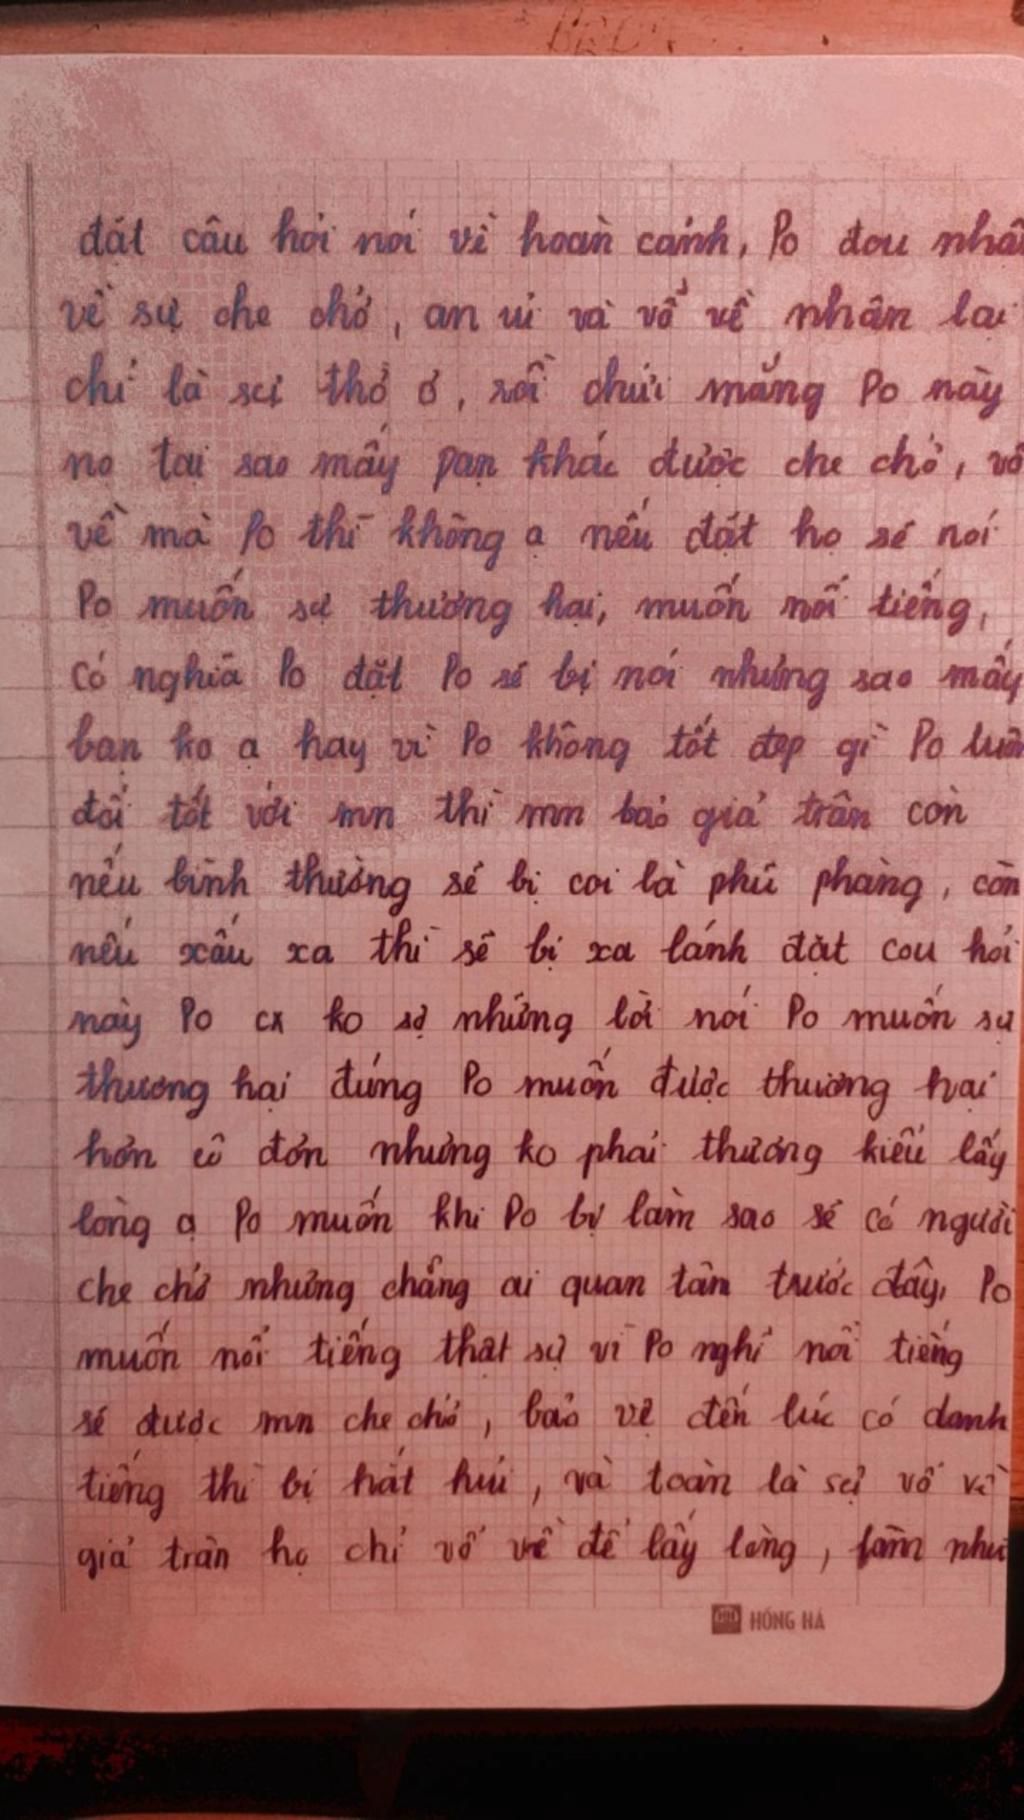 đặt câu hỏi nói về hoàn cảnh, Po đou nhấ
về sự che chở, an ủi và vỗ về nhân lại
chỉ là sự thở ơ, rồi chửi mắng Po này
nọ tại sao mấy pạn khác được che chở, vỗ
về mà Po thì không ạ nếu đặt họ sẽ nói
Po muốn sự thương hại, muốn nổi tiếng,
có nghĩa Po đặt Po sẽ bị nói nhưng sao mấy
bạn ko ạ hay vì Po không tốt đẹp gì Po luôn
đối tốt với mn thì mn bảo giả trân còn
nếu bình thường sẽ bị coi là phũ phàng, còn
nếu xấu xa thì sẽ bị xa lánh đặt cou hỏi
này Po cx ko sợ những lời nói Po muốn sự
thương hại đúng Po muốn được thương hại
hơn cô đơn nhưng ko phải thương kiểu lấy
lòng ạ Po muốn khi Po bị làm sao sẽ có người
che chở nhưng chẳng ai quan tâm trước đây, Po
muốn nổi tiếng thật sự vì Po nghĩ nổi tiếng
sẽ được mn che chở, bảo vệ đến lúc có danh
tiếng thì bị hắt hủi, và toàn là sự vỗ về
giả trân họ chỉ vỗ về để lấy lòng, làm như
HỒNG HÀ